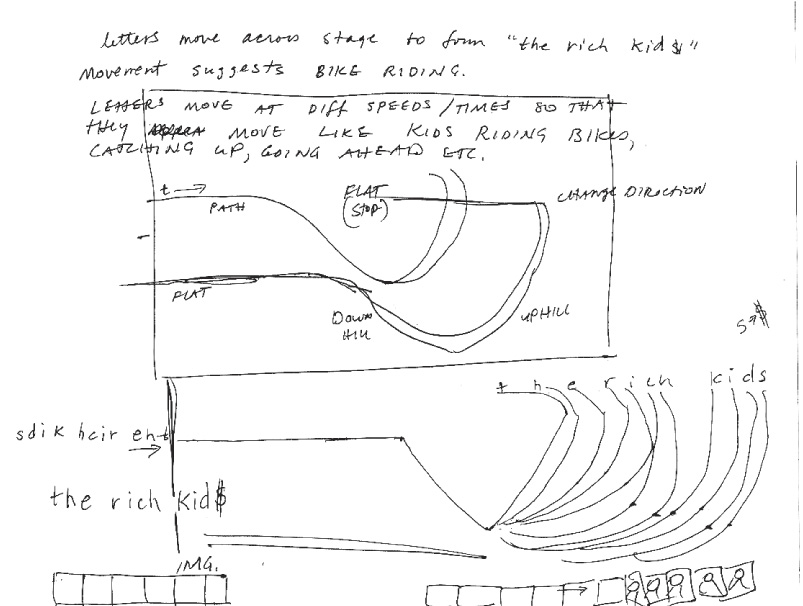 letters move across stage to form "the rich kid$"
movement suggests BIKE RIDING.
LETTERS MOVE AT DIFF SPEEDS/TIMES SO THAT
THEY MOVE LIKE KIDS RIDING BIKES,
CATCHING UP, GOING AHEAD ETC.
t → FLAT CHANGE DIRECTION
PATH (STOP)
FLAT
DOWN UPHILL
HILL
S → $
t h e r i c h k i d s
sdik hcir eht
the rich kid$